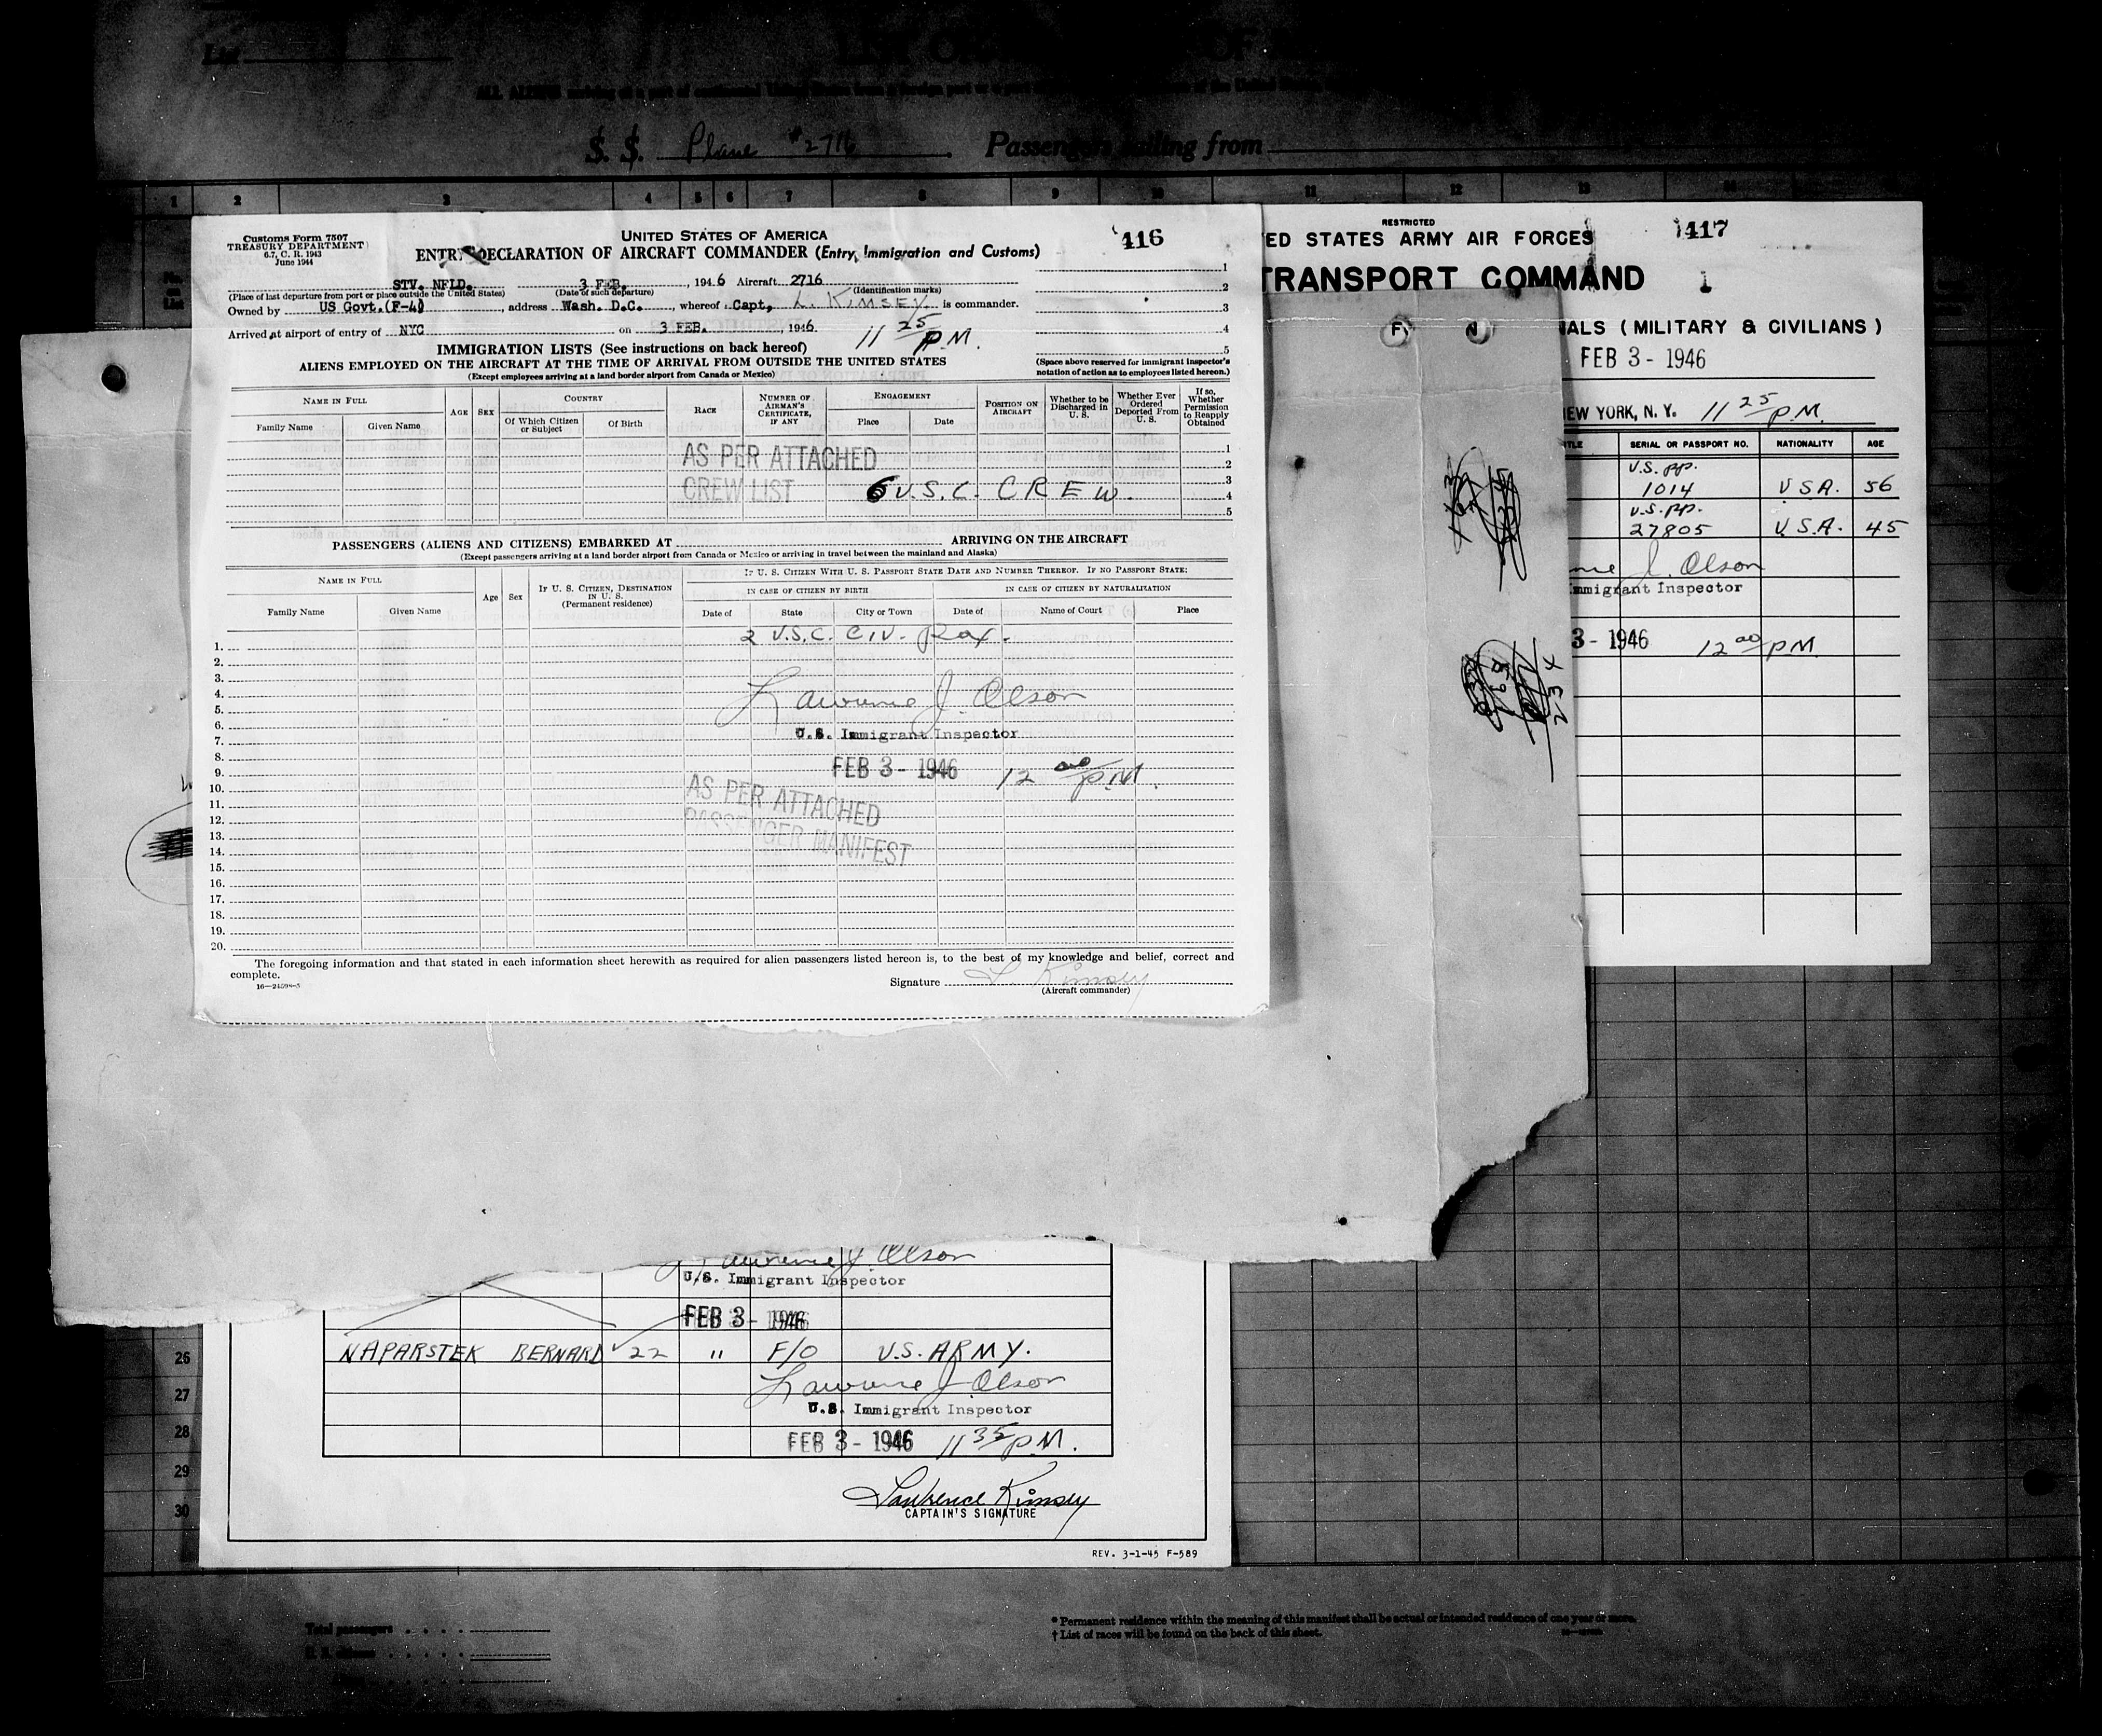 List
S. S. Plane #2716 Passengers sailing from
1 2 3 4 5 6 7 8 9 10 11 12 13
Customs Form 7507
TREASURY DEPARTMENT
6.7, C. R. 1943
June 1944
UNITED STATES OF AMERICA
416
ENTRY DECLARATION OF AIRCRAFT COMMANDER (Entry, Immigration and Customs)
STV. NFLD. 3 FEB. , 1946 Aircraft 2716
(Place of last departure from port or place outside the United States) (Date of such departure) (Identification marks)
Owned by US Govt.(F-4) , address Wash. D.C. , whereof Capt, L. KIMSEY is commander.
Arrived at airport of entry of NYC on 3 FEB. , 1946. 11 25 P.M.
1
2
3
4
5
IMMIGRATION LISTS (See instructions on back hereof)
ALIENS EMPLOYED ON THE AIRCRAFT AT THE TIME OF ARRIVAL FROM OUTSIDE THE UNITED STATES
(Except employees arriving at a land border airport from Canada or Mexico)
(Space above reserved for immigrant inspector's notation of action as to employees listed hereon.)
NAME IN FULL
Family Name Given Name
AGE SEX
COUNTRY
Of Which Citizen or Subject Of Birth
RACE
NUMBER OF AIRMAN'S CERTIFICATE, IF ANY
ENGAGEMENT
Place Date
POSITION ON AIRCRAFT
Whether to be Discharged in U. S.
Whether Ever Ordered Deported From U. S.
If so, Whether Permission to Reapply Obtained
1
AS PER ATTACHED 2
3
CREW LIST 6 U.S.C. CREW. 4
5
PASSENGERS (ALIENS AND CITIZENS) EMBARKED AT ARRIVING ON THE AIRCRAFT
(Except passengers arriving at a land border airport from Canada or Mexico or arriving in travel between the mainland and Alaska)
NAME IN FULL
Family Name Given Name
Age Sex
IF U. S. CITIZEN, DESTINATION IN U. S. (Permanent residence)
IF U. S. CITIZEN WITH U. S. PASSPORT STATE DATE AND NUMBER THEREOF. IF NO PASSPORT STATE:
IN CASE OF CITIZEN BY BIRTH IN CASE OF CITIZEN BY NATURALIZATION
Date of State City or Town Date of Name of Court Place
2 U.S.C. CIV. Pax.
1.
2.
3.
4.
Lawrence J. Olson
5.
6.
7. U.S. Immigrant Inspector
8.
9. FEB 3 - 1946 12 00 P.M.
10. AS PER ATTACHED
11.
12. PASSENGER MANIFEST
13.
14.
15.
16.
17.
18.
19.
20.
The foregoing information and that stated in each information sheet herewith as required for alien passengers listed hereon is, to the best of my knowledge and belief, correct and
complete.
16—24598-3
Signature L. Kimsey
(Aircraft commander)
RESTRICTED
ED STATES ARMY AIR FORCES 1417
TRANSPORT COMMAND 1
NALS (MILITARY & CIVILIANS)
FEB 3 - 1946
NEW YORK, N. Y. 11 25 P.M.
TLE SERIAL OR PASSPORT NO. NATIONALITY AGE
U.S. PP.
1014 USA. 56
U.S. PP.
27805 U.S.A. 45
J. Olson
Immigrant Inspector
3 - 1946 12 00 P.M.
234
Lawrence J. Olson
U.S. Immigrant Inspector
FEB 3 - 1946
26 NAPARSTEK BERNARD 22 " F/O U.S. ARMY.
27 Lawrence J Olson
U.S. Immigrant Inspector
28 FEB 3 - 1946 11 35 P.M.
29
30 Lawrence Kimsey
CAPTAIN'S SIGNATURE
REV. 3-1-45 F-589
Total passengers
* Permanent residence within the meaning of this manifest shall be actual or intended residence of one year or more.
† List of races will be found on the back of this sheet.